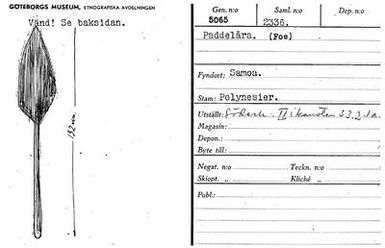 GÖTEBORGS MUSEUM, ETNOGRAFISKA AVDELNINGEN
Vänd! Se baksidan.
132 mm.
Gen. n:o Saml. n:o Dep. n:o
5065 2336.
Paddelåra. (Foe)
Fyndort: Samoa.
Stam: Polynesier.
Utställt: 33.2.a.
Magasin:
Depon.:
Byte till:
Negat. n:o Teckn. n:o
Skiopt. „ Kliché „
Publ.: